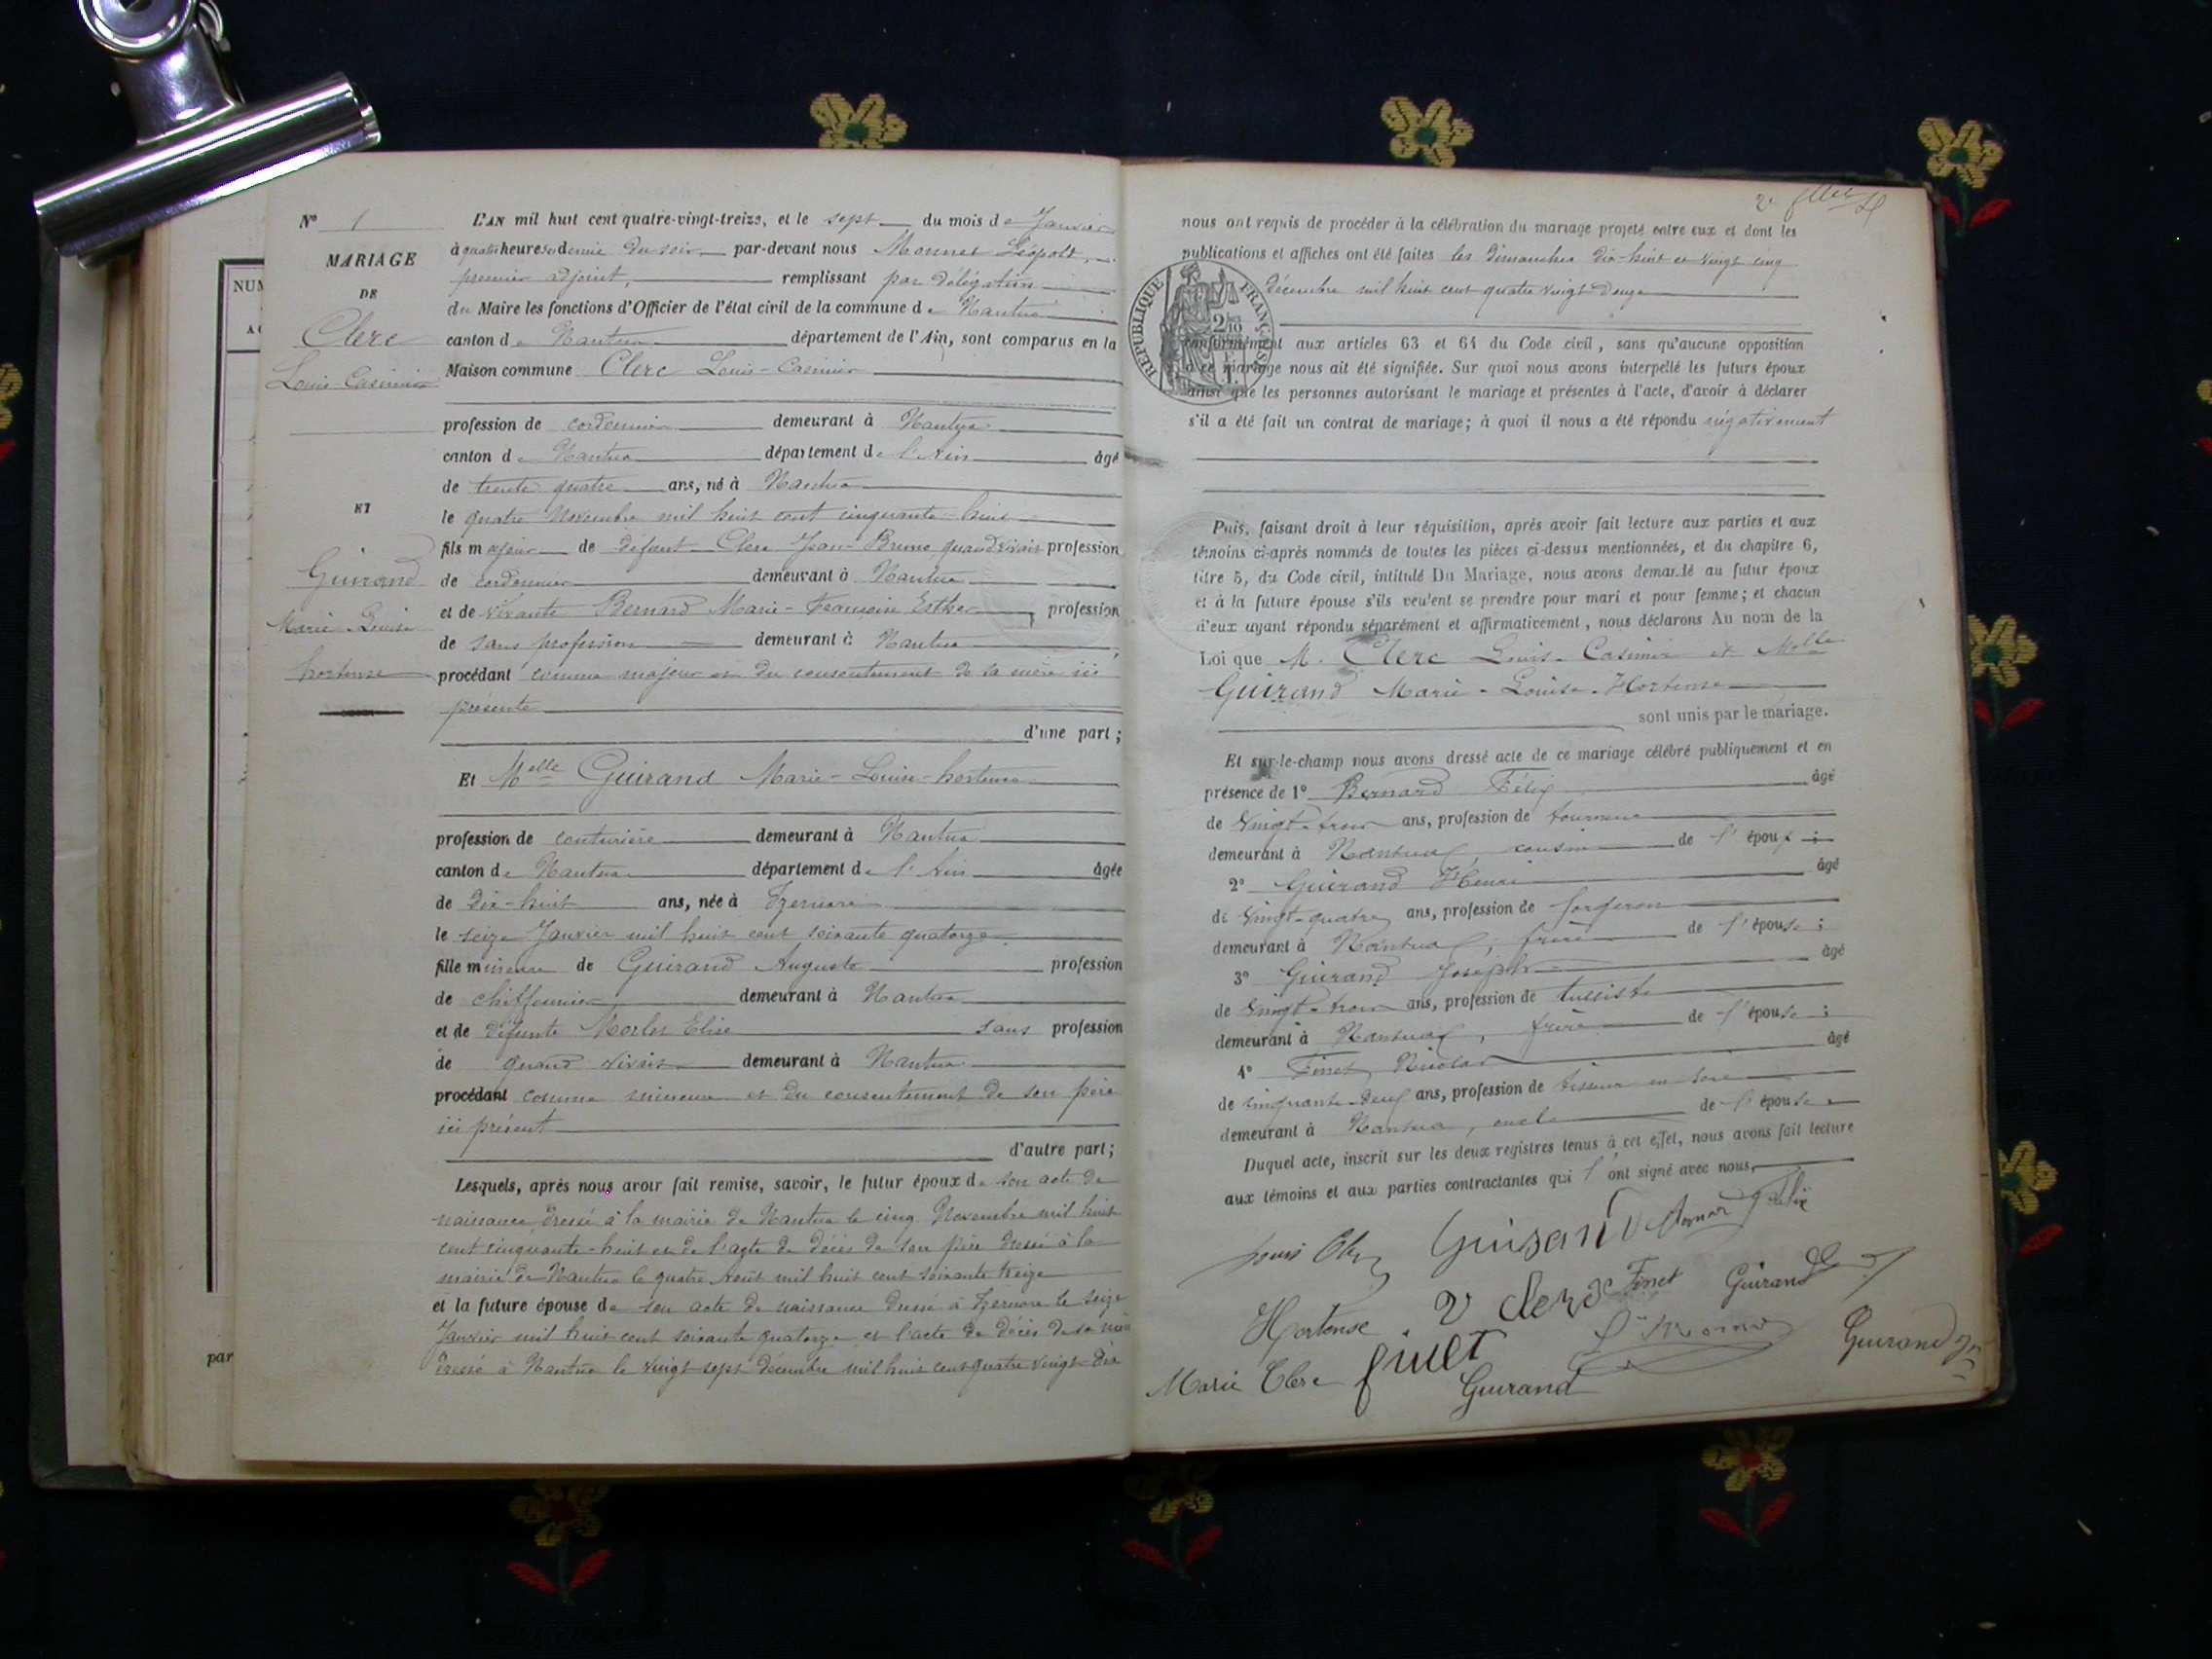 N° 1
MARIAGE
DE
Clerc
Louis-Casimir
ET
Guirand
Marie Louise
hortense
L'AN mil huit cent quatre-vingt-treize, et le sept du mois de Janvier
à quatre heures et demie du soir par-devant nous Monnet Léopold,
premier adjoint, remplissant par délégation
du Maire les fonctions d'Officier de l'état civil de la commune de Nantua
canton de Nantua département de l'Ain, sont comparus en la
Maison commune Clerc Louis-Casimir
profession de cordonnier demeurant à Nantua
canton de Nantua département de l'Ain âgé
de trente quatre ans, né à Nantua
le quatre Novembre mil huit cent cinquante-huit
fils majeur de défunt Clerc Jean-Bruno quand vivait profession
de cordonnier demeurant à Nantua
et de vivante Bernard Marie-Françoise Esther, profession
de sans profession demeurant à Nantua
procédant comme majeur et du consentement de sa mère ici
présente
d'une part;
Et Melle Guirand Marie-Louise-hortense
profession de couturière demeurant à Nantua
canton de Nantua département de l'Ain âgée
de dix-huit ans, née à Izernore
le seize Janvier mil huit cent soixante quatorze
fille mineure de Guirand Auguste profession
de chiffonnier demeurant à Nantua
et de défunte Morlet Elise sans profession
de quand vivait demeurant à Nantua
procédant comme mineure et du consentement de son père
ici présent
d'autre part;
Lesquels, après nous avoir fait remise, savoir, le futur époux de son acte de
naissance dressé à la mairie de Nantua le cinq Novembre mil huit
cent cinquante-huit et de l'acte de décès de son père dressé à la
mairie de Nantua le quatre Août mil huit cent soixante treize
et la future épouse de son acte de naissance dressé à Izernore le seize
Janvier mil huit cent soixante quatorze et l'acte de décès de sa mère
dressé à Nantua le vingt-sept décembre mil huit cent quatre vingt-dix
NUM
par
nous ont requis de procéder à la célébration du mariage projeté entre eux et dont les
publications et affiches ont été faites les dimanches dix-huit et vingt cinq
décembre mil huit cent quatre vingt-douze
RÉPUBLIQUE FRANÇAISE
conformément aux articles 63 et 64 du Code civil, sans qu'aucune opposition
à ce mariage nous ait été signifiée. Sur quoi nous avons interpellé les futurs époux
ainsi que les personnes autorisant le mariage et présentes à l'acte, d'avoir à déclarer
s'il a été fait un contrat de mariage; à quoi il nous a été répondu négativement
Puis, faisant droit à leur réquisition, après avoir fait lecture aux parties et aux
témoins ci-après nommés de toutes les pièces ci-dessus mentionnées, et du chapitre 6,
titre 5, du Code civil, intitulé Du Mariage, nous avons demandé au futur époux
et à la future épouse s'ils veulent se prendre pour mari et pour femme; et chacun
d'eux ayant répondu séparément et affirmativement, nous déclarons Au nom de la
Loi que M. Clerc Louis-Casimir et Melle
Guirand Marie-Louise-Hortense
sont unis par le mariage.
Et sur-le-champ nous avons dressé acte de ce mariage célébré publiquement et en
présence de 1° Bernard Félix âgé
de vingt-trois ans, profession de tourneur
demeurant à Nantua cousin de l'époux;
2° Guirand Henri âgé
de vingt-quatre ans, profession de forgeron
demeurant à Nantua, frère de l'épouse;
3° Guirand Joseph âgé
de vingt-trois ans, profession de tulliste
demeurant à Nantua, frère de l'épouse;
4° Finet Nicolas âgé
de cinquante-deux ans, profession de tisseur en soie
demeurant à Nantua, oncle de l'épouse
Duquel acte, inscrit sur les deux registres tenus à cet effet, nous avons fait lecture
aux témoins et aux parties contractantes qui l'ont signé avec nous.
Louis Clerc Guirand Bernard Félix
Hortense Ve Clerc Finet Guirand
Marie Clerc finet Guirand Guirand